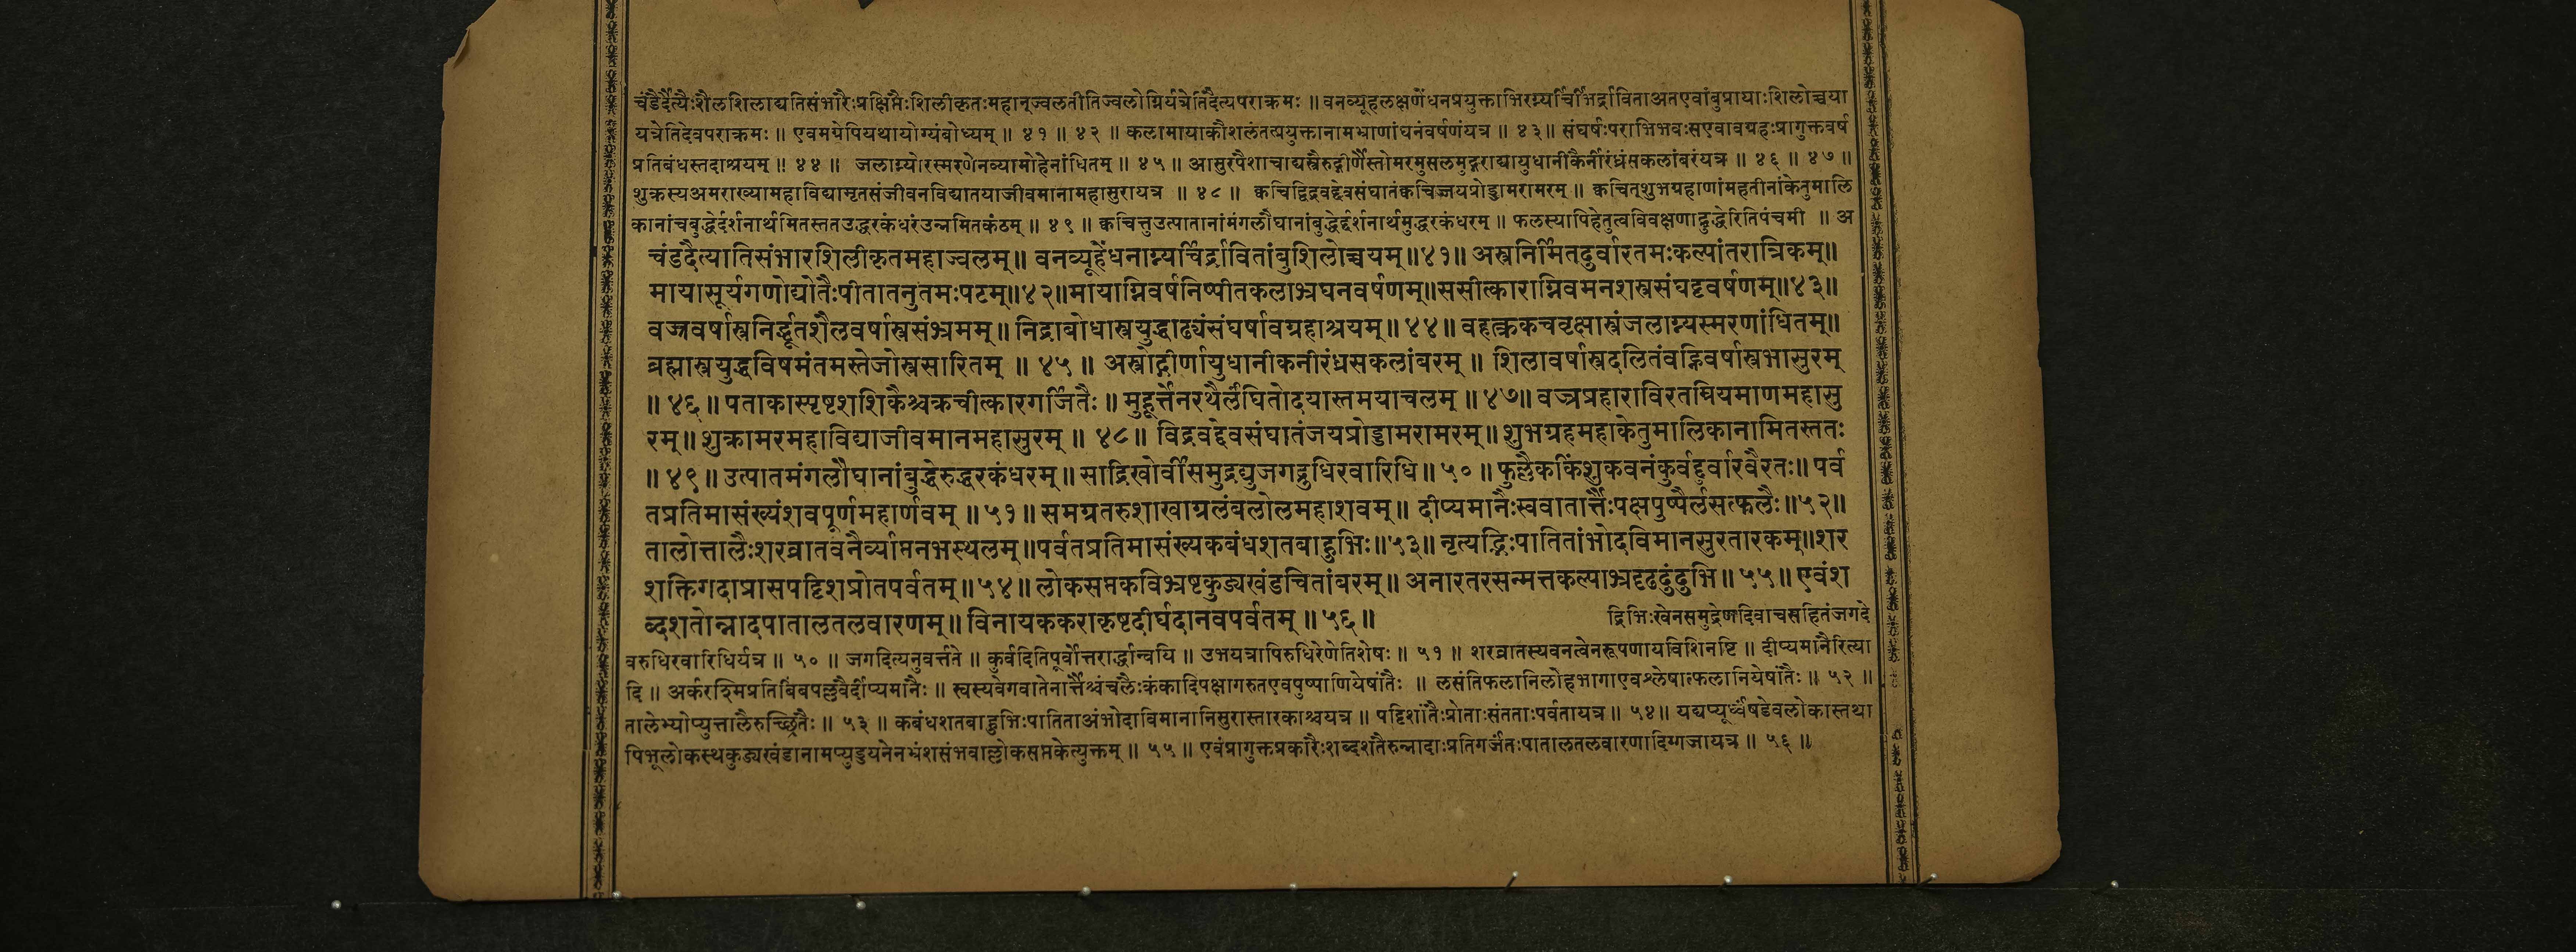 चंडैर्दैत्यैःशैलशिलाद्यतिसंभारैःप्रक्षिप्तैःशिलीकृतःमहान्ज्वलतीतिज्वलोग्निर्यत्रेतिदैत्यपराक्रमः ॥ वनव्यूहलक्षणेंधनप्रयुक्ताभिरग्न्यर्चिर्भिर्द्राविताअतएवांबुप्रायाःशिलोच्चया
यत्रेतिदेवपराक्रमः ॥ एवमग्रेपियथायोग्यंबोध्यम् ॥ ४१ ॥ ४२ ॥ कलामायाकौशलंतत्प्रयुक्तानामभ्राणांघनंवर्षणंयत्र ॥ ४३ ॥ संघर्षःपराभिभवःसएवावग्रहःप्रागुक्तवर्ष
प्रतिबंधस्तदाश्रयम् ॥ ४४ ॥ जलाग्न्योरस्मरणेनव्यामोहेनांधितम् ॥ ४५ ॥ आसुरपैशाचाद्यस्त्रैरुद्गीर्णैस्तोमरमुसलमुद्गराद्यायुधानीकैर्नीरंध्रंसकलांबरंयत्र ॥ ४६ ॥ ४७ ॥
शुक्रस्यअमराख्यामहाविद्यामृतसंजीवनविद्यातयाजीवमानामहासुरायत्र ॥ ४८ ॥ क्वचिद्विद्रवद्देवसंघातंक्वचिज्जयप्रोड्डामरामरम् ॥ क्वचित्शुभग्रहाणांमहतीनांकेतुमालि
कानांचबुद्धेर्दर्शनार्थमितस्ततउद्धरकंधरंउन्नमितकंठम् ॥ ४९ ॥ क्वचित्तुउत्पातानांमंगलौघानांबुद्धेर्द्दर्शनार्थमुद्धरकंधरम् ॥ फलस्यापिहेतुत्वविवक्षणाद्बुद्धेरितिपंचमी ॥ अ
चंडदैत्यातिसंभारशिलीकृतमहाज्वलम् ॥ वनव्यूहेंधनाग्न्यर्चिर्द्रावितांबुशिलोच्चयम् ॥ ४१ ॥ अस्त्रनिर्मितदुर्वारतमःकल्पांतरात्रिकम् ॥
मायासूर्यगणोद्योतैःपीतातनुतमःपटम् ॥ ४२ ॥ मायाग्निवर्षनिष्पीतकलाभ्रघनवर्षणम् ॥ ससीत्काराग्निवमनशस्त्रसंघट्टवर्षणम् ॥ ४३ ॥
वज्रवर्षास्त्रनिर्द्धूतशैलवर्षास्त्रसंभ्रमम् ॥ निद्राबोधास्त्रयुद्धाढ्यंसंघर्षावग्रहाश्रयम् ॥ ४४ ॥ वहत्क्रकचवृक्षास्त्रंजलाग्न्यस्मरणांधितम् ॥
ब्रह्मास्त्रयुद्धविषमंतमस्तेजोस्त्रसारितम् ॥ ४५ ॥ अस्त्रोद्गीर्णायुधानीकनीरंध्रसकलांबरम् ॥ शिलावर्षास्त्रदलितंवह्निवर्षास्त्रभासुरम्
॥ ४६ ॥ पताकास्पृष्टशशिकैश्चक्रचीत्कारगर्जितैः ॥ मुहूर्त्तेनरथैर्लंघितोदयास्तमयाचलम् ॥ ४७ ॥ वज्रप्रहाराविरतम्रियमाणमहासु
रम् ॥ शुक्रामरमहाविद्याजीवमानमहासुरम् ॥ ४८ ॥ विद्रवद्देवसंघातंजयप्रोड्डामरामरम् ॥ शुभग्रहमहाकेतुमालिकानामितस्ततः
॥ ४९ ॥ उत्पातमंगलौघानांबुद्धेरुद्धरकंधरम् ॥ साद्रिखोर्वीसमुद्रद्युजगद्रुधिरवारिधि ॥ ५० ॥ फुल्लैककिंशुकवनंकुर्वद्दुर्वारवैरतः ॥ पर्व
तप्रतिमासंख्यंशवपूर्णमहार्णवम् ॥ ५१ ॥ समग्रतरुशाखाग्रलंबलोलमहाशवम् ॥ दीप्यमानैःस्ववातार्त्तैःपक्षपुष्पैर्लसत्फलैः ॥ ५२ ॥
तालोत्तालैःशरव्रातवनैर्व्याप्तनभस्थलम् ॥ पर्वतप्रतिमासंख्यकबंधशतबाहुभिः ॥ ५३ ॥ नृत्यद्भिःपातितांभोदविमानसुरतारकम् ॥ शर
शक्तिगदाप्रासपट्टिशप्रोतपर्वतम् ॥ ५४ ॥ लोकसप्तकविभ्रष्टकुड्यखंडचितांबरम् ॥ अनारतरसन्मत्तकल्पाभ्रदृढदुंदुभि ॥ ५५ ॥ एवंश
ब्दशतोन्नादपातालतलवारणम् ॥ विनायककराकृष्टदीर्घदानवपर्वतम् ॥ ५६ ॥ द्रिभिःखेनसमुद्रेणदिवाचसहितंजगदे
वरुधिरवारिधिर्यत्र ॥ ५० ॥ जगदित्यनुवर्त्तते ॥ कुर्वदितिपूर्वोत्तरार्द्धान्वयि ॥ उभयत्रापिरुधिरेणेतिशेषः ॥ ५१ ॥ शरव्रातस्यवनत्वेनरूपणायविशिनष्टि ॥ दीप्यमानैरित्या
दि ॥ अर्करश्मिप्रतिबिंबपल्लवैर्दीप्यमानैः ॥ स्वस्यवेगवातेनार्त्तैश्चंचलैःकंकादिपक्षागरुतएवपुष्पाणियेषांतैः ॥ लसंतिफलानिलोहभागाएवश्लेषात्फलानियेषांतैः ॥ ५२ ॥
तालेभ्योप्युत्तालैरुच्छ्रितैः ॥ ५३ ॥ कबंधशतबाहुभिःपातिताअंभोदाविमानानिसुरास्तारकाश्चयत्र ॥ पट्टिशांतैःप्रोताःसंतताःपर्वतायत्र ॥ ५४ ॥ यद्यप्यूर्ध्वंषडेवलोकास्तथा
पिभूलोकस्थकुड्यखंडानामप्युड्डयनेनभ्रंशसंभवाल्लोकसप्तकेत्युक्तम् ॥ ५५ ॥ एवंप्रागुक्तप्रकारैःशब्दशतैरुन्नादाःप्रतिगर्जंतःपातालतलवारणादिग्गजायत्र ॥ ५६ ॥